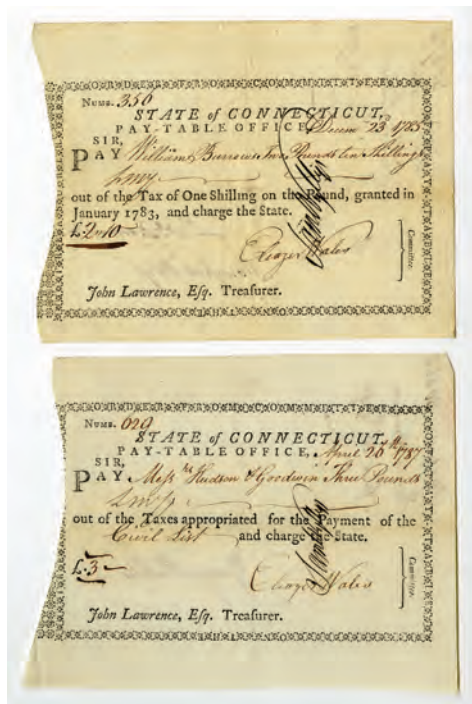 ORDER FROM COMMITTEE
OF PAY-TABLE
Numb. 350
STATE of CONNECTICUT,
PAY-TABLE OFFICE, Decem 23 1785
SIR,
PAY William Burrows Two Pounds ten Shillings
Lmy
out of the Tax of One Shilling on the Pound, granted in
January 1783, and charge the State.
£.2 10
Eleazer Wales
Committee.
John Lawrence, Esq. Treasurer.
ORDER FROM COMMITTEE
OF PAY-TABLE
Numb. 620
STATE of CONNECTICUT,
PAY-TABLE OFFICE, April 26th 1787
SIR,
PAY Messrs Hudson & Goodwin Three Pounds
Lmy
out of the Taxes appropriated for the Payment of the
Civil List and charge the State.
£.3
Eleazer Wales
Committee.
John Lawrence, Esq. Treasurer.